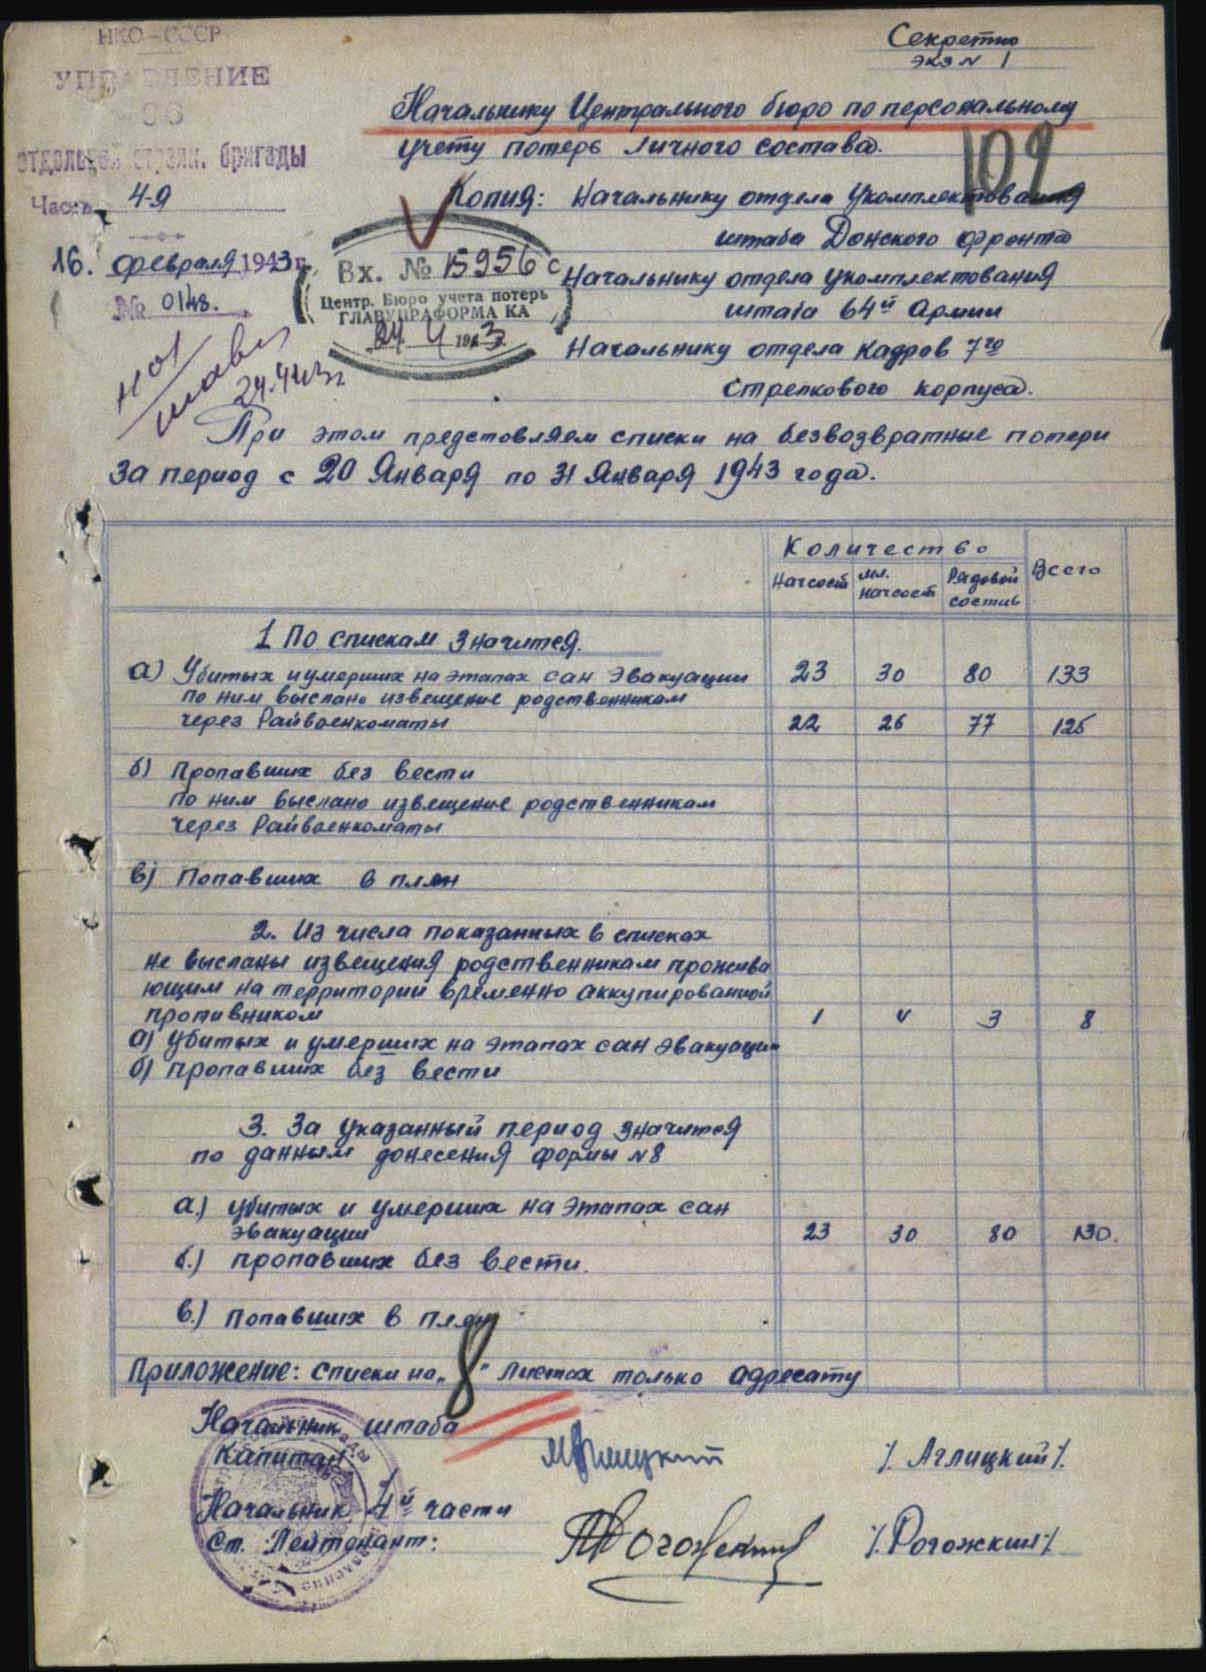 НКО-СССР
УПРАВЛЕНИЕ
отдельной стрелк. бригады
Часть 4-я
16. февраля 1943 г.
№ 0148.
Секретно
экз N 1
Начальнику Центрального бюро по персональному
учету потерь личного состава.
102
Копия: Начальнику отдела укомплектования
штаба Донского фронта
Начальнику отдела укомплектования
штаба 64й Армии
Начальнику отдела кадров 7го
стрелкового корпуса.
Вх. № 15956 с
Центр. Бюро учета потерь
ГЛАВУПРАФОРМА КА
24 4 1943
24.4.43г
При этом представляем списки на безвозвратные потери
за период с 20 Января по 31 Января 1943 года.
Количество
Всего
Начсост мл. начсост Рядовой состав
1 По спискам значится.
а) Убитых и умерших на этапах сан эвакуации 23 30 80 133
по ним выслано извещение родственникам
через Райвоенкоматы 22 26 77 125
б) Пропавших без вести
по ним выслано извещение родственникам
через Райвоенкоматы
в) Попавших в плен
2. Из числа показанных в списках
не высланы извещения родственникам прожива
ющим на территории временно аккупированной
противником 1 4 3 8
а) Убитых и умерших на этапах сан эвакуации
б) пропавших без вести
3. За указанный период значится
по данным донесения формы N8
а.) убитых и умерших на этапах сан
эвакуации 23 30 80 130.
б.) пропавших без вести.
в.) Попавших в плен
Приложение: списки на „8" листах только адресату
Начальник штаба
Капитан /. Аглицкий /.
Начальник 4й части
Ст. Лейтенант: /. Рогожкин /